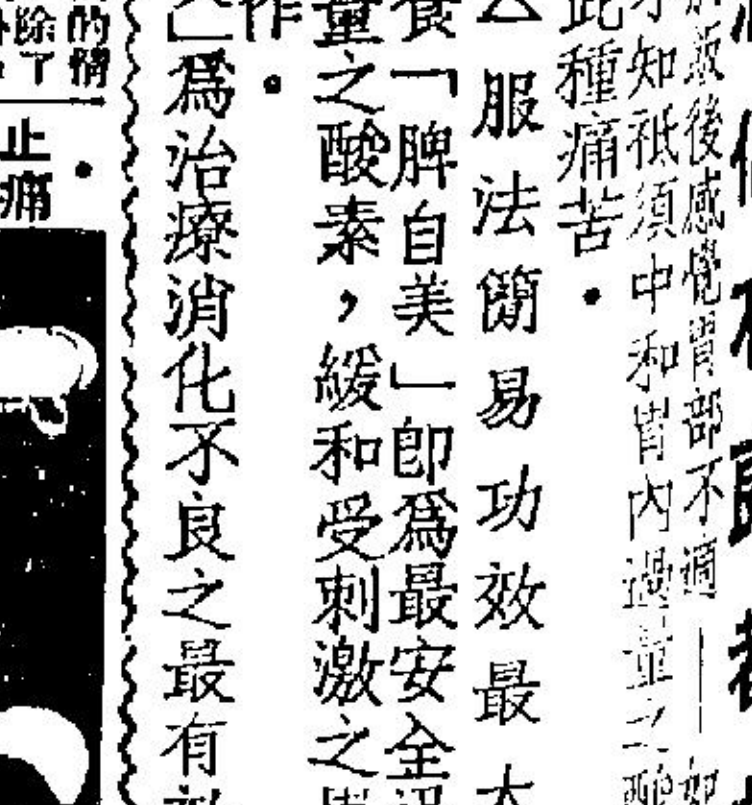 飯後感覺胃部不適
知祇須中和胃內過量之酸
此種痛苦。
△服法簡易功效最大
食「脾自美」卽爲最安全
量之酸素，緩和受刺激之
作。
」爲治療消化不良之最有效
的情
除了
止痛